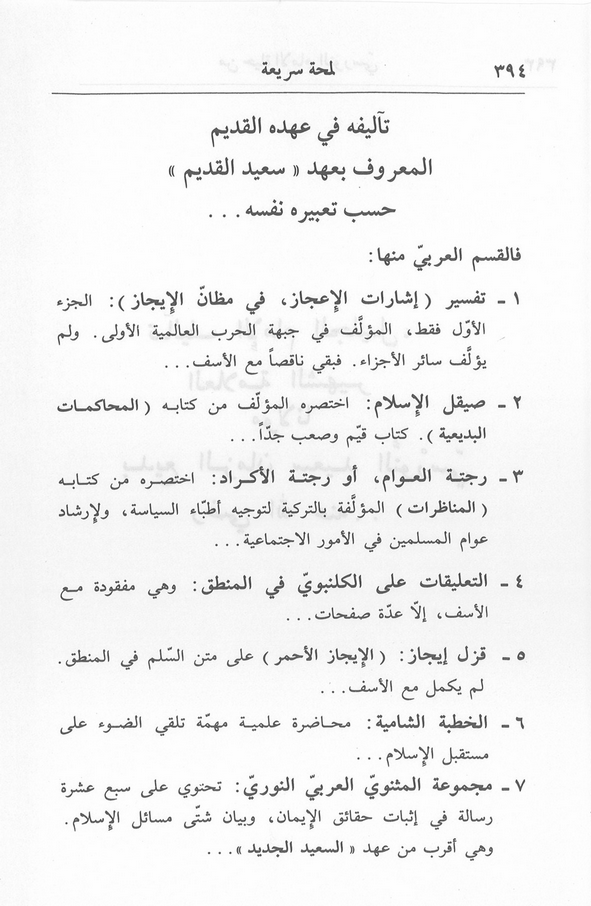 ٣٩٤
لمحة سريعة
تآليفه في عهده القديم
المعروف بعهد « سعيد القديم »
حسب تعبيره نفسه...
فالقسم العربيّ منها:
١ - تفسير (إشارات الإعجاز، في مظانّ الإيجاز): الجزء
الأوّل فقط، المؤلَّف في جبهة الحرب العالمية الأولى. ولم
يؤلَّف سائر الأجزاء. فبقي ناقصاً مع الأسف...
٢ - صيقل الإسلام: اختصره المؤلّف من كتابه (المحاكمات
البديعية). كتاب قيّم وصعب جدّاً...
٣ - رجتة العوام، أو رجتة الأكراد: اختصره من كتابه
(المناظرات) المؤلَّفة بالتركية لتوجيه أطبّاء السياسة، ولإرشاد
عوام المسلمين في الأمور الاجتماعية...
٤ - التعليقات على الكلنبويّ في المنطق: وهي مفقودة مع
الأسف، إلّا عدّة صفحات...
٥ - قزل إيجاز: (الإيجاز الأحمر) على متن السّلم في المنطق.
لم يكمل مع الأسف...
٦ - الخطبة الشامية: محاضرة علمية مهمّة تلقي الضوء على
مستقبل الإسلام...
٧ - مجموعة المثنويّ العربيّ النوريّ: تحتوي على سبع عشرة
رسالة في إثبات حقائق الإيمان، وبيان شتّى مسائل الإسلام.
وهي أقرب من عهد « السعيد الجديد »...